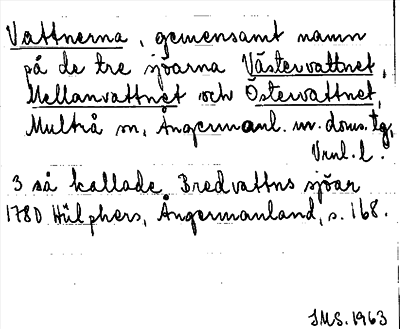 Vattnerna, gemensamt namn
på de tre sjöarna Västervattnet,
Mellanvattnet och Östervattnet,
Multrå sn, Ångermanl. m. doms. tg,
Vnl. l.
3 så kallade Bredvattns sjöar
1780 Hülphers, Ångermanland, s. 168.
JMS. 1963